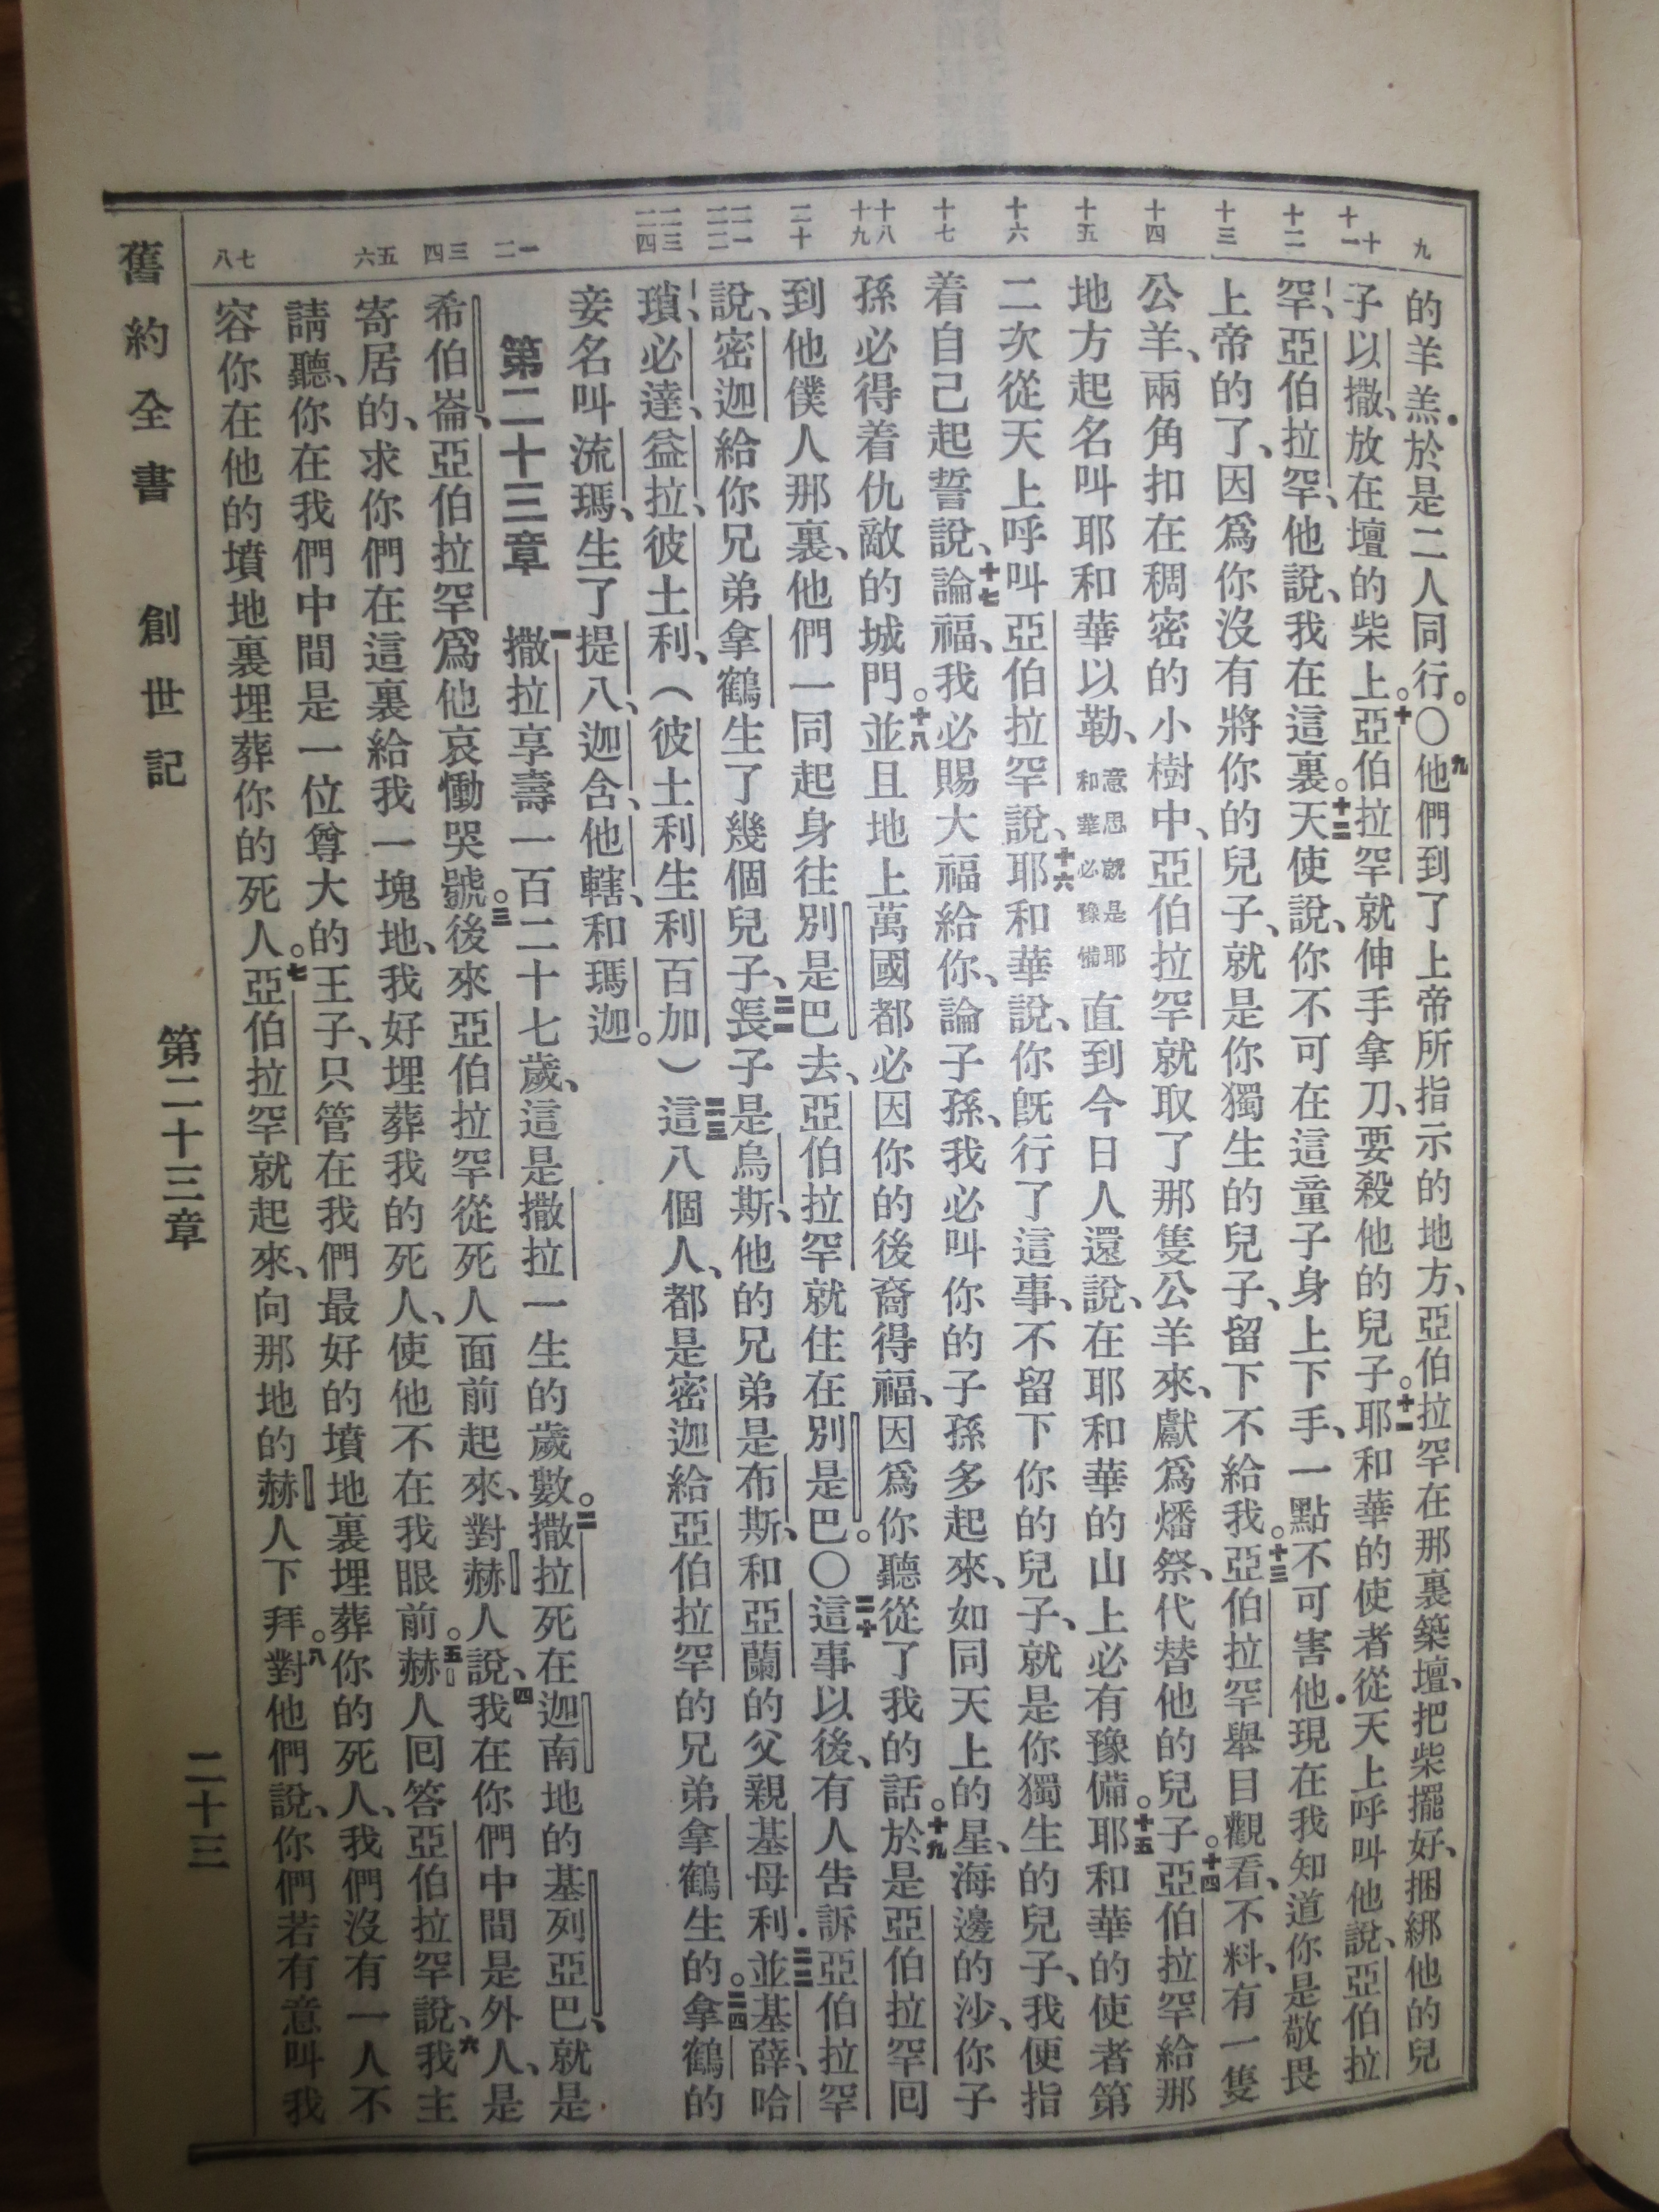 九
十 十一
十二
十三
十四
十五
十六
十七
十八 十九
二十
二一 二二
二三 二四
一 二
三 四
五 六
七 八
的羊羔．於是二人同行。〇九他們到了上帝所指示的地方、亞伯拉罕在那裏築壇、把柴擺好、捆綁他的兒
子以撒、放在壇的柴上。十亞伯拉罕就伸手拿刀、要殺他的兒子。十一耶和華的使者從天上呼叫他說、亞伯拉
罕、亞伯拉罕、他說、我在這裏。十二天使說、你不可在這童子身上下手、一點不可害他．現在我知道你是敬畏
上帝的了、因爲你沒有將你的兒子、就是你獨生的兒子、留下不給我。十三亞伯拉罕舉目觀看、不料、有一隻
公羊、兩角扣在稠密的小樹中、亞伯拉罕就取了那隻公羊來、獻爲燔祭、代替他的兒子。十四亞伯拉罕給那
地方起名叫耶和華以勒、意思就是耶和華必豫備直到今日人還說、在耶和華的山上必有豫備。十五耶和華的使者第
二次從天上呼叫亞伯拉罕說、十六耶和華說、你旣行了這事、不留下你的兒子、就是你獨生的兒子、我便指
着自己起誓說、十七論福、我必賜大福給你、論子孫、我必叫你的子孫多起來、如同天上的星、海邊的沙、你子
孫必得着仇敵的城門。十八並且地上萬國都必因你的後裔得福、因爲你聽從了我的話。十九於是亞伯拉罕回
到他僕人那裏、他們一同起身往別是巴去、亞伯拉罕就住在別是巴。〇二十這事以後、有人告訴亞伯拉罕
說、密迦給你兄弟拿鶴生了幾個兒子、二一長子是烏斯、他的兄弟是布斯、和亞蘭的父親基母利．二二並基薛、哈
瑣、必達、益拉、彼土利、（彼土利生利百加）二三這八個人、都是密迦給亞伯拉罕的兄弟拿鶴生的。二四拿鶴的
妾名叫流瑪、生了提八、迦含、他轄、和瑪迦。
第二十三章　一撒拉享壽一百二十七歲、這是撒拉一生的歲數。二撒拉死在迦南地的基列亞巴、就是
希伯崙、亞伯拉罕爲他哀慟哭號。三後來亞伯拉罕從死人面前起來、對赫人說、四我在你們中間是外人、是
寄居的、求你們在這裏給我一塊地、我好埋葬我的死人、使他不在我眼前。五赫人回答亞伯拉罕說、六我主
請聽、你在我們中間是一位尊大的王子、只管在我們最好的墳地裏埋葬你的死人、我們沒有一人不
容你在他的墳地裏埋葬你的死人。七亞伯拉罕就起來、向那地的赫人下拜。八對他們說、你們若有意叫我
舊約全書　創世記　第二十三章　二十三